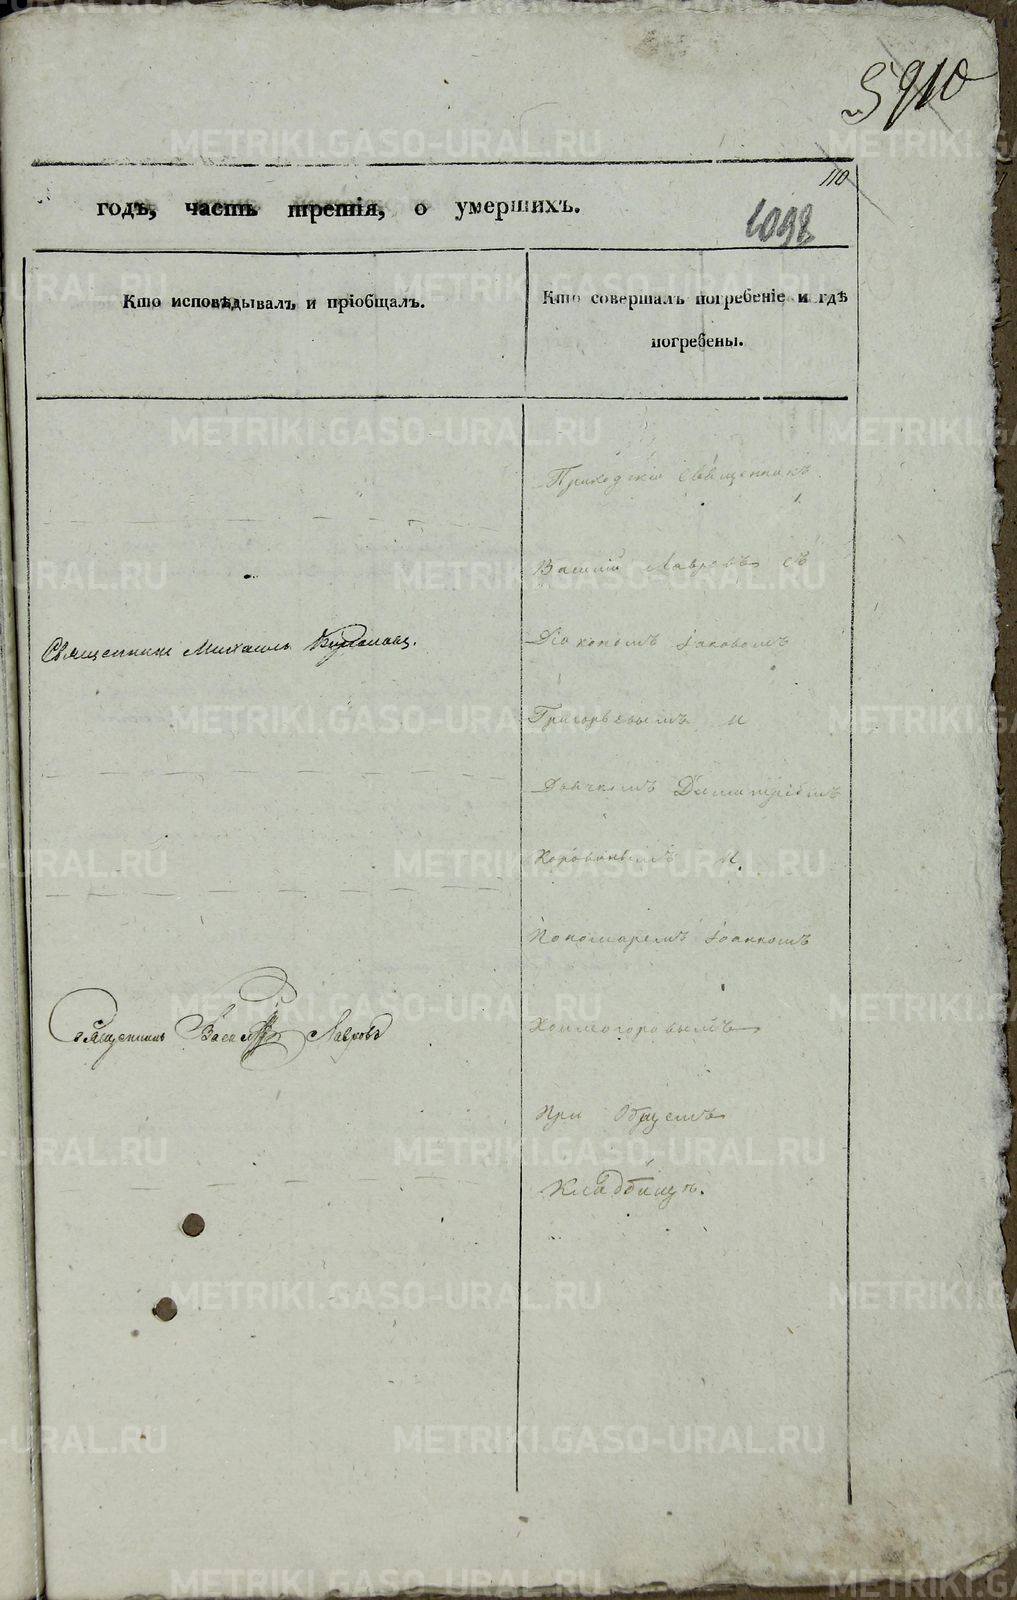 910
110
годъ, часть третія, о умершихъ.
1098
Кто исповѣдывалъ и пріобщалъ.
Кто совершалъ погребеніе и гдѣ
погребены.
Приходскій Священникъ
Василій Лавровъ съ
Діакономъ Іаковомъ
Священникъ Михаилъ
Григорьевымъ и
Дьячкомъ Димитріемъ
Коровинымъ и
Пономаремъ Іоанномъ
Священникъ Василій Лавровъ
Холмогоровымъ
При Общемъ
Кладбищѣ.
METRIKI.GASO-URAL.RU